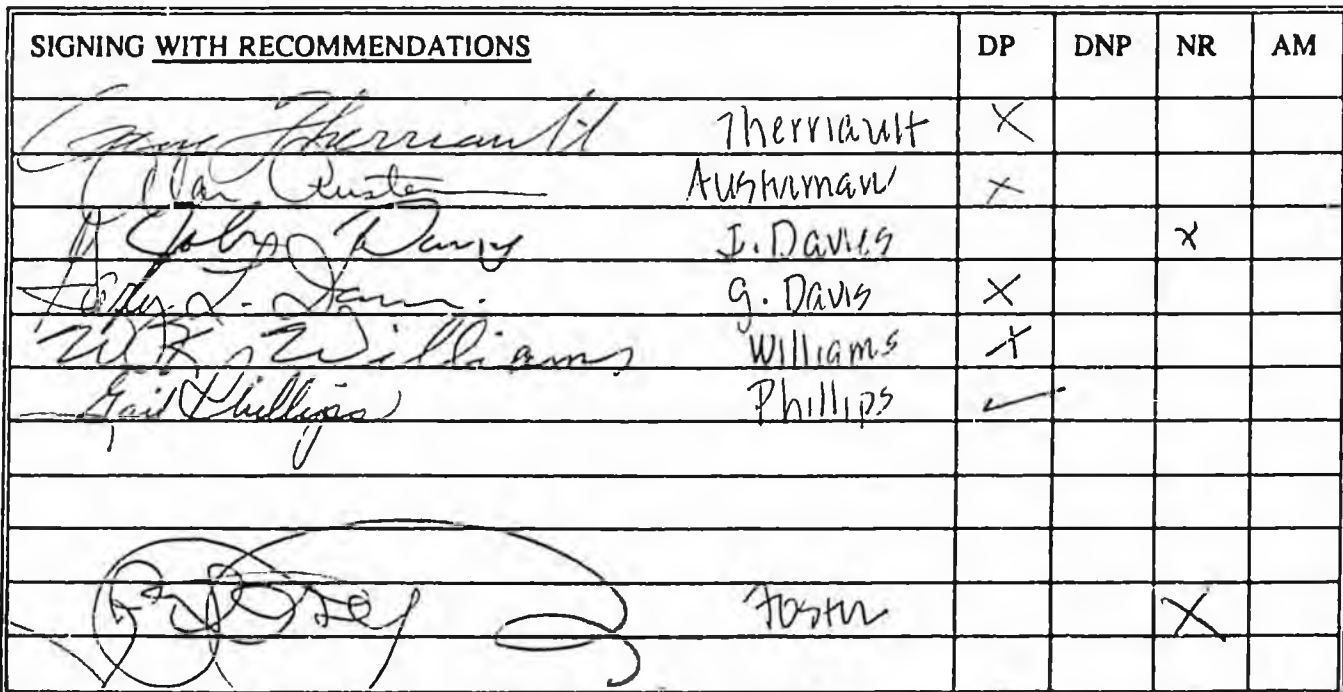 SIGNING WITH RECOMMENDATIONS DP DNP NR AM
Gene Therriault Therriault X
Alan Auster Austerman X
John Davies J. Davies X
Gary L. Davis G. Davis X
W.K. Williams Williams X
Gail Phillips Phillips ✓
Foster X